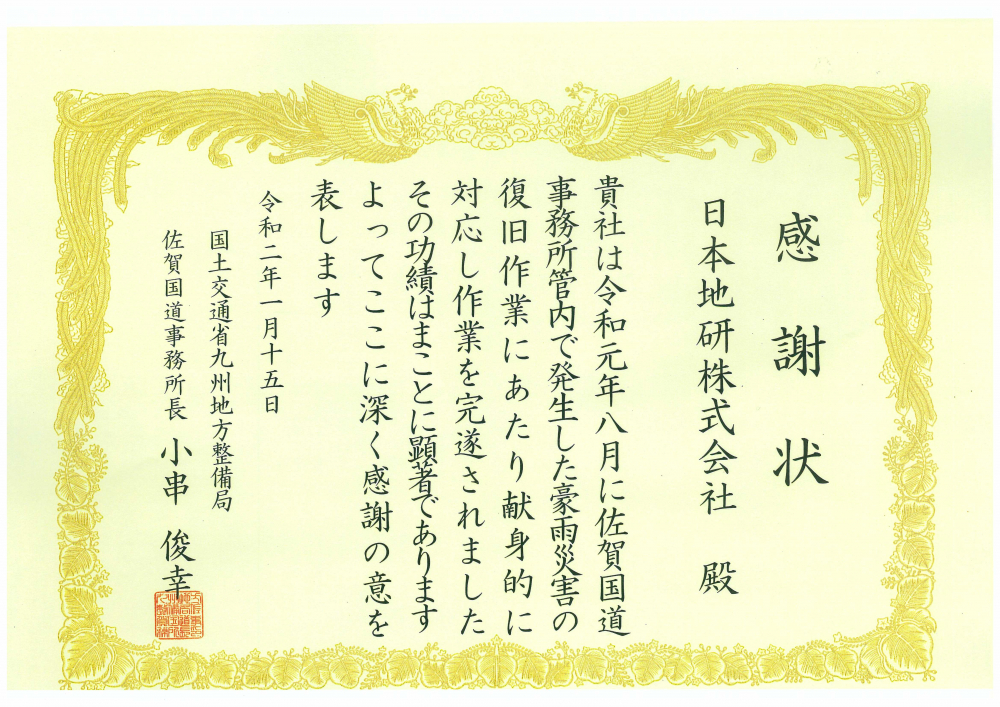 感謝状
日本地研株式会社 殿
貴社は令和元年八月に佐賀国道
事務所管内で発生した豪雨災害の
復旧作業にあたり献身的に
対応し作業を完遂されました
その功績はまことに顕著であります
よってここに深く感謝の意を
表します
令和二年一月十五日
国土交通省九州地方整備局
佐賀国道事務所長 小串 俊幸